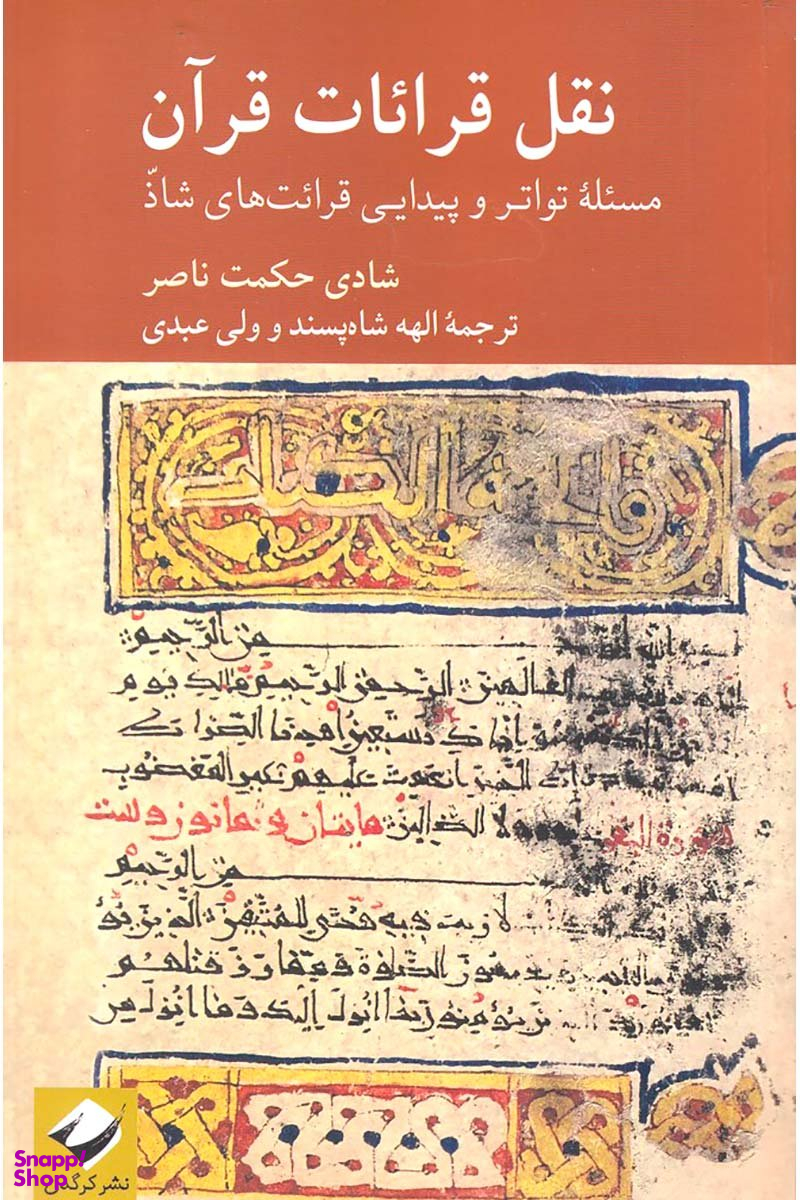 نقل قرائات قرآن
مسئلهٔ تواتر و پیدایی قرائت‌های شاذّ
شادی حکمت ناصر
ترجمهٔ الهه شاه‌پسند و ولی عبدی
فاتحة الكتاب
بسم الله الرحمن الرحيم
العالمين الرحمن الرحيم ملك يوم
اياك نستعين اهدنا الصراط
الذين انعمت عليهم غير المغضوب
ولا الضالين مايتان و ثمانون وست
الرحيم
لا ريب فيه هدى للمتقين الذين يؤ
الصلوة ومما رزقناهم
يؤمنون بما انزل اليك وما انزل من
Snapp!
Shop
نشر کرگدن